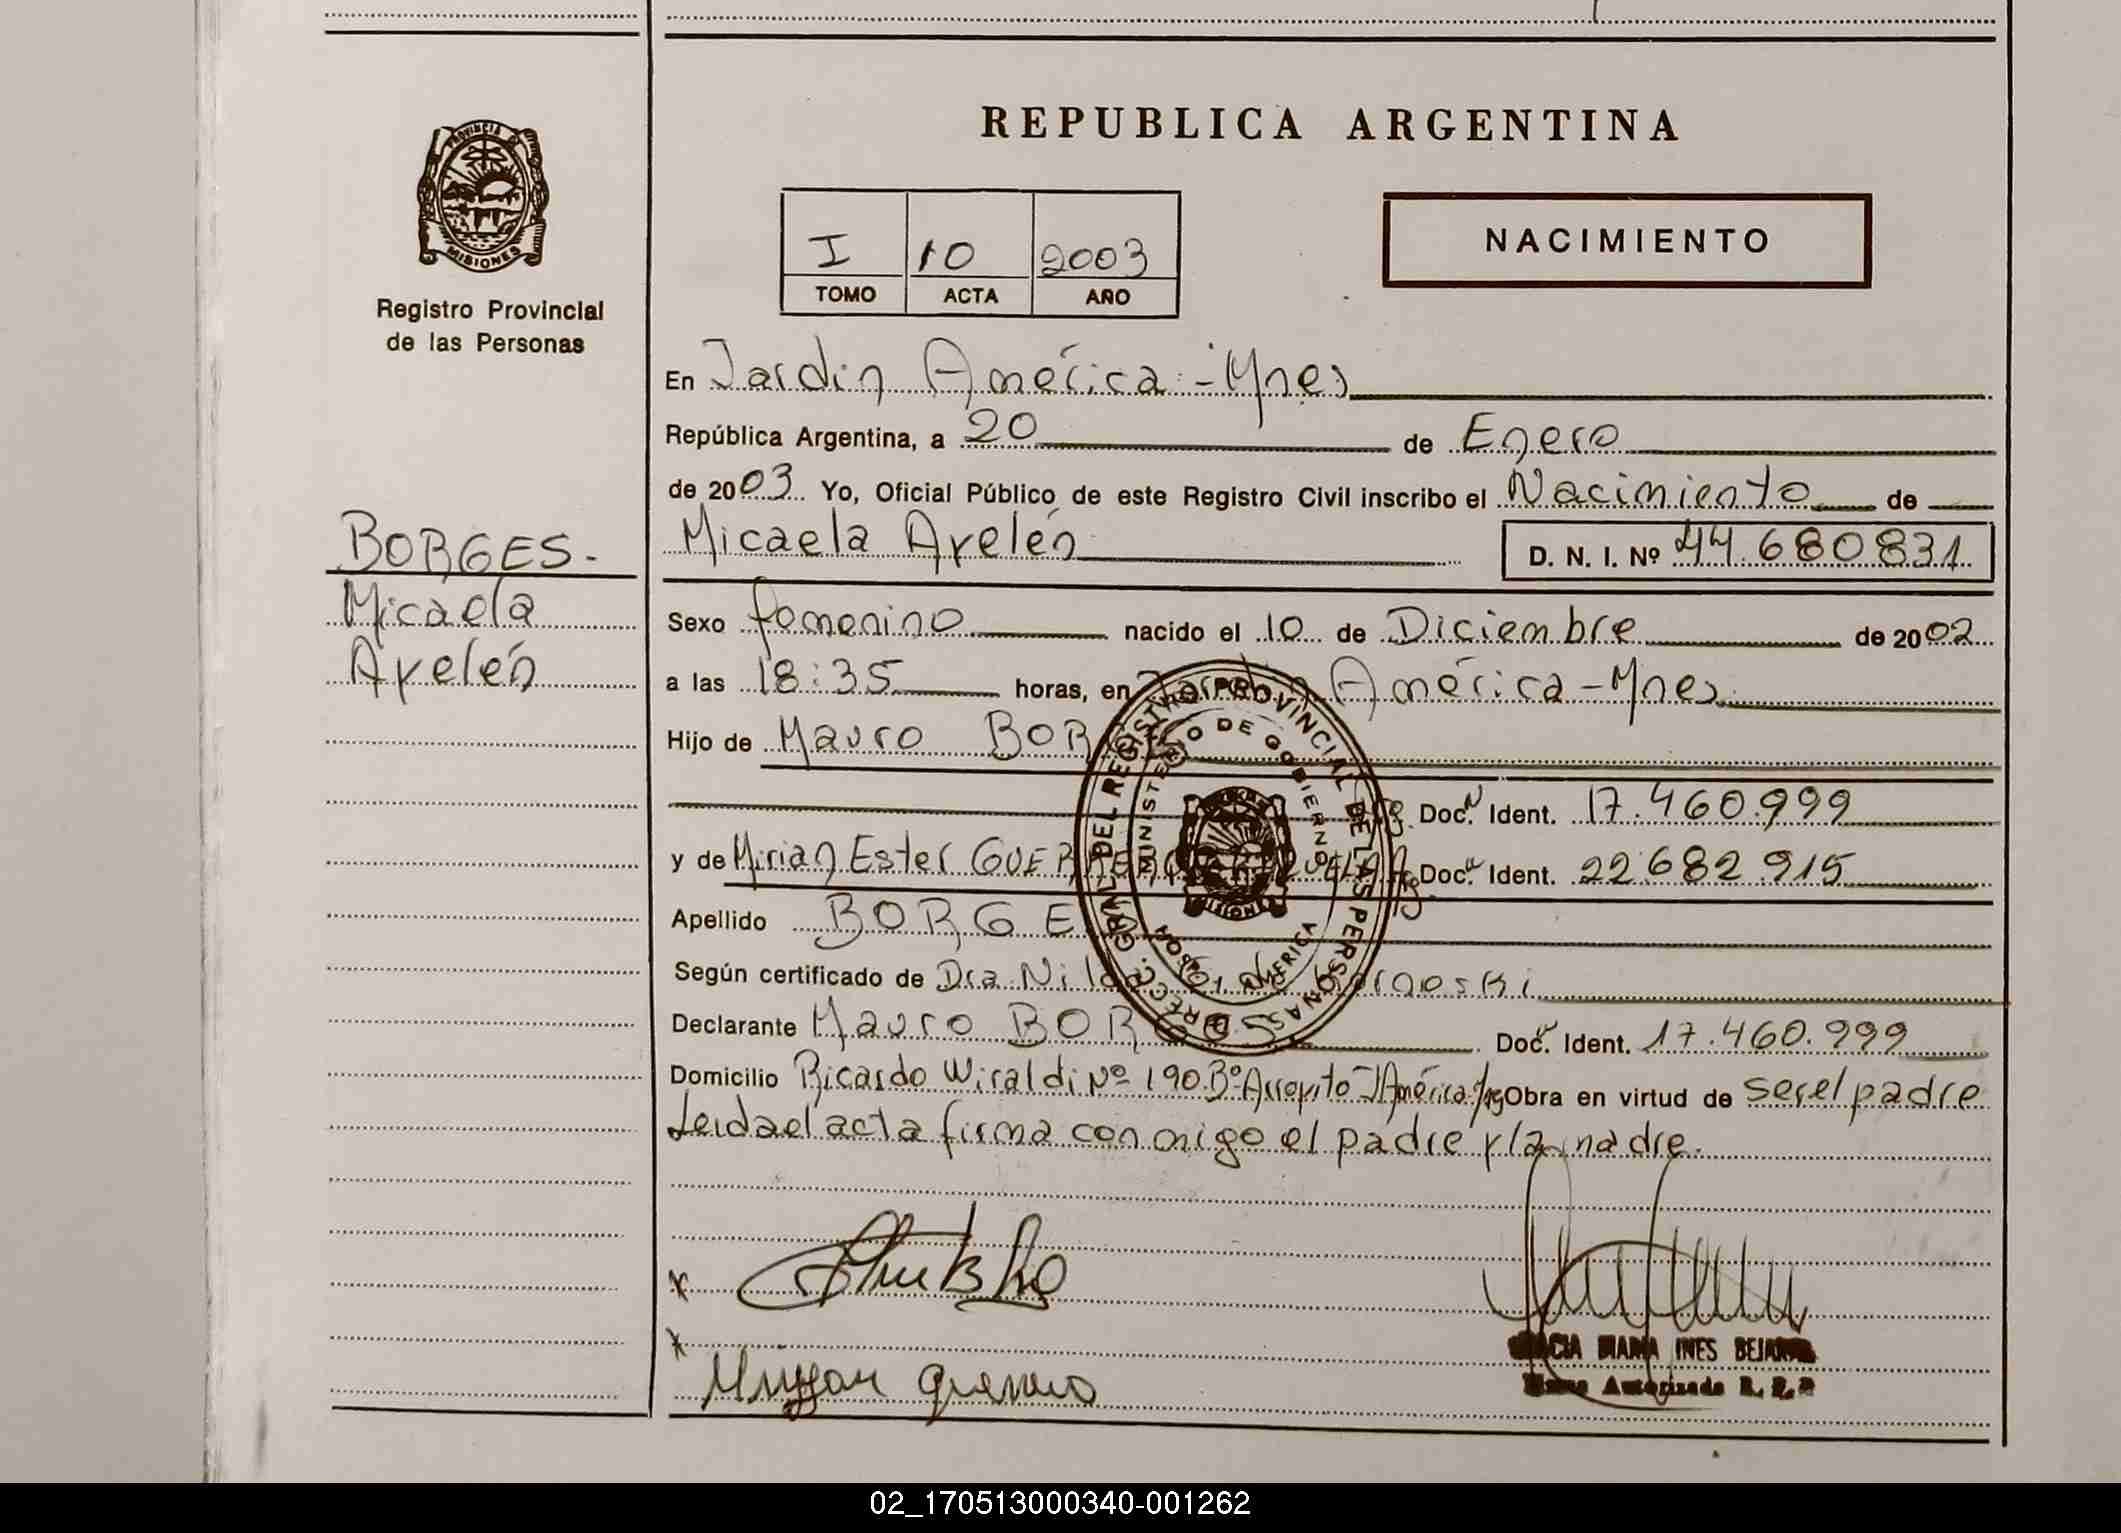 REPUBLICA ARGENTINA
PROVINCIA DE MISIONES
Registro Provincial
de las Personas
I 10 2003
TOMO ACTA AÑO
NACIMIENTO
En Jardin América - Mnes
República Argentina, a 20 de Enero
de 2003 Yo, Oficial Público de este Registro Civil inscribo el Nacimiento de
BORGES-
Micaela
Ayelén
Micaela Ayelén D. N. I. Nº 44.680831
Sexo femenino nacido el 10 de Diciembre de 2002
a las 18:35 horas, en América - Mnes
Hijo de Mauro
Doc. Ident. 17.460.999
y de Mirian Ester Doc. Ident. 22.682.915
Apellido
Según certificado de Dra.
Declarante Mauro BORGES Doc. Ident. 17.460.999
Domicilio Ricardo Nº 190 Bº América Obra en virtud de ser el padre
Leida el acta firma conmigo el padre y la madre.
DIRECC. GRAL. DEL REGISTRO PROVINCIAL DE LAS PERSONAS
MINISTERIO DE GOBIERNO
AMERICA
MISIONES
MARIA INES
Autorizada
02_170513000340-001262